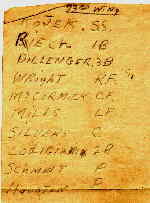 93RD WING
NOVEK. S.S.
RIECK 1B
DILLENGER. 3B
WRIGHT RF
McCORMICK CF
MILLS LF
SILVERS C
2B
SCHMIDT P
HOUSTON P